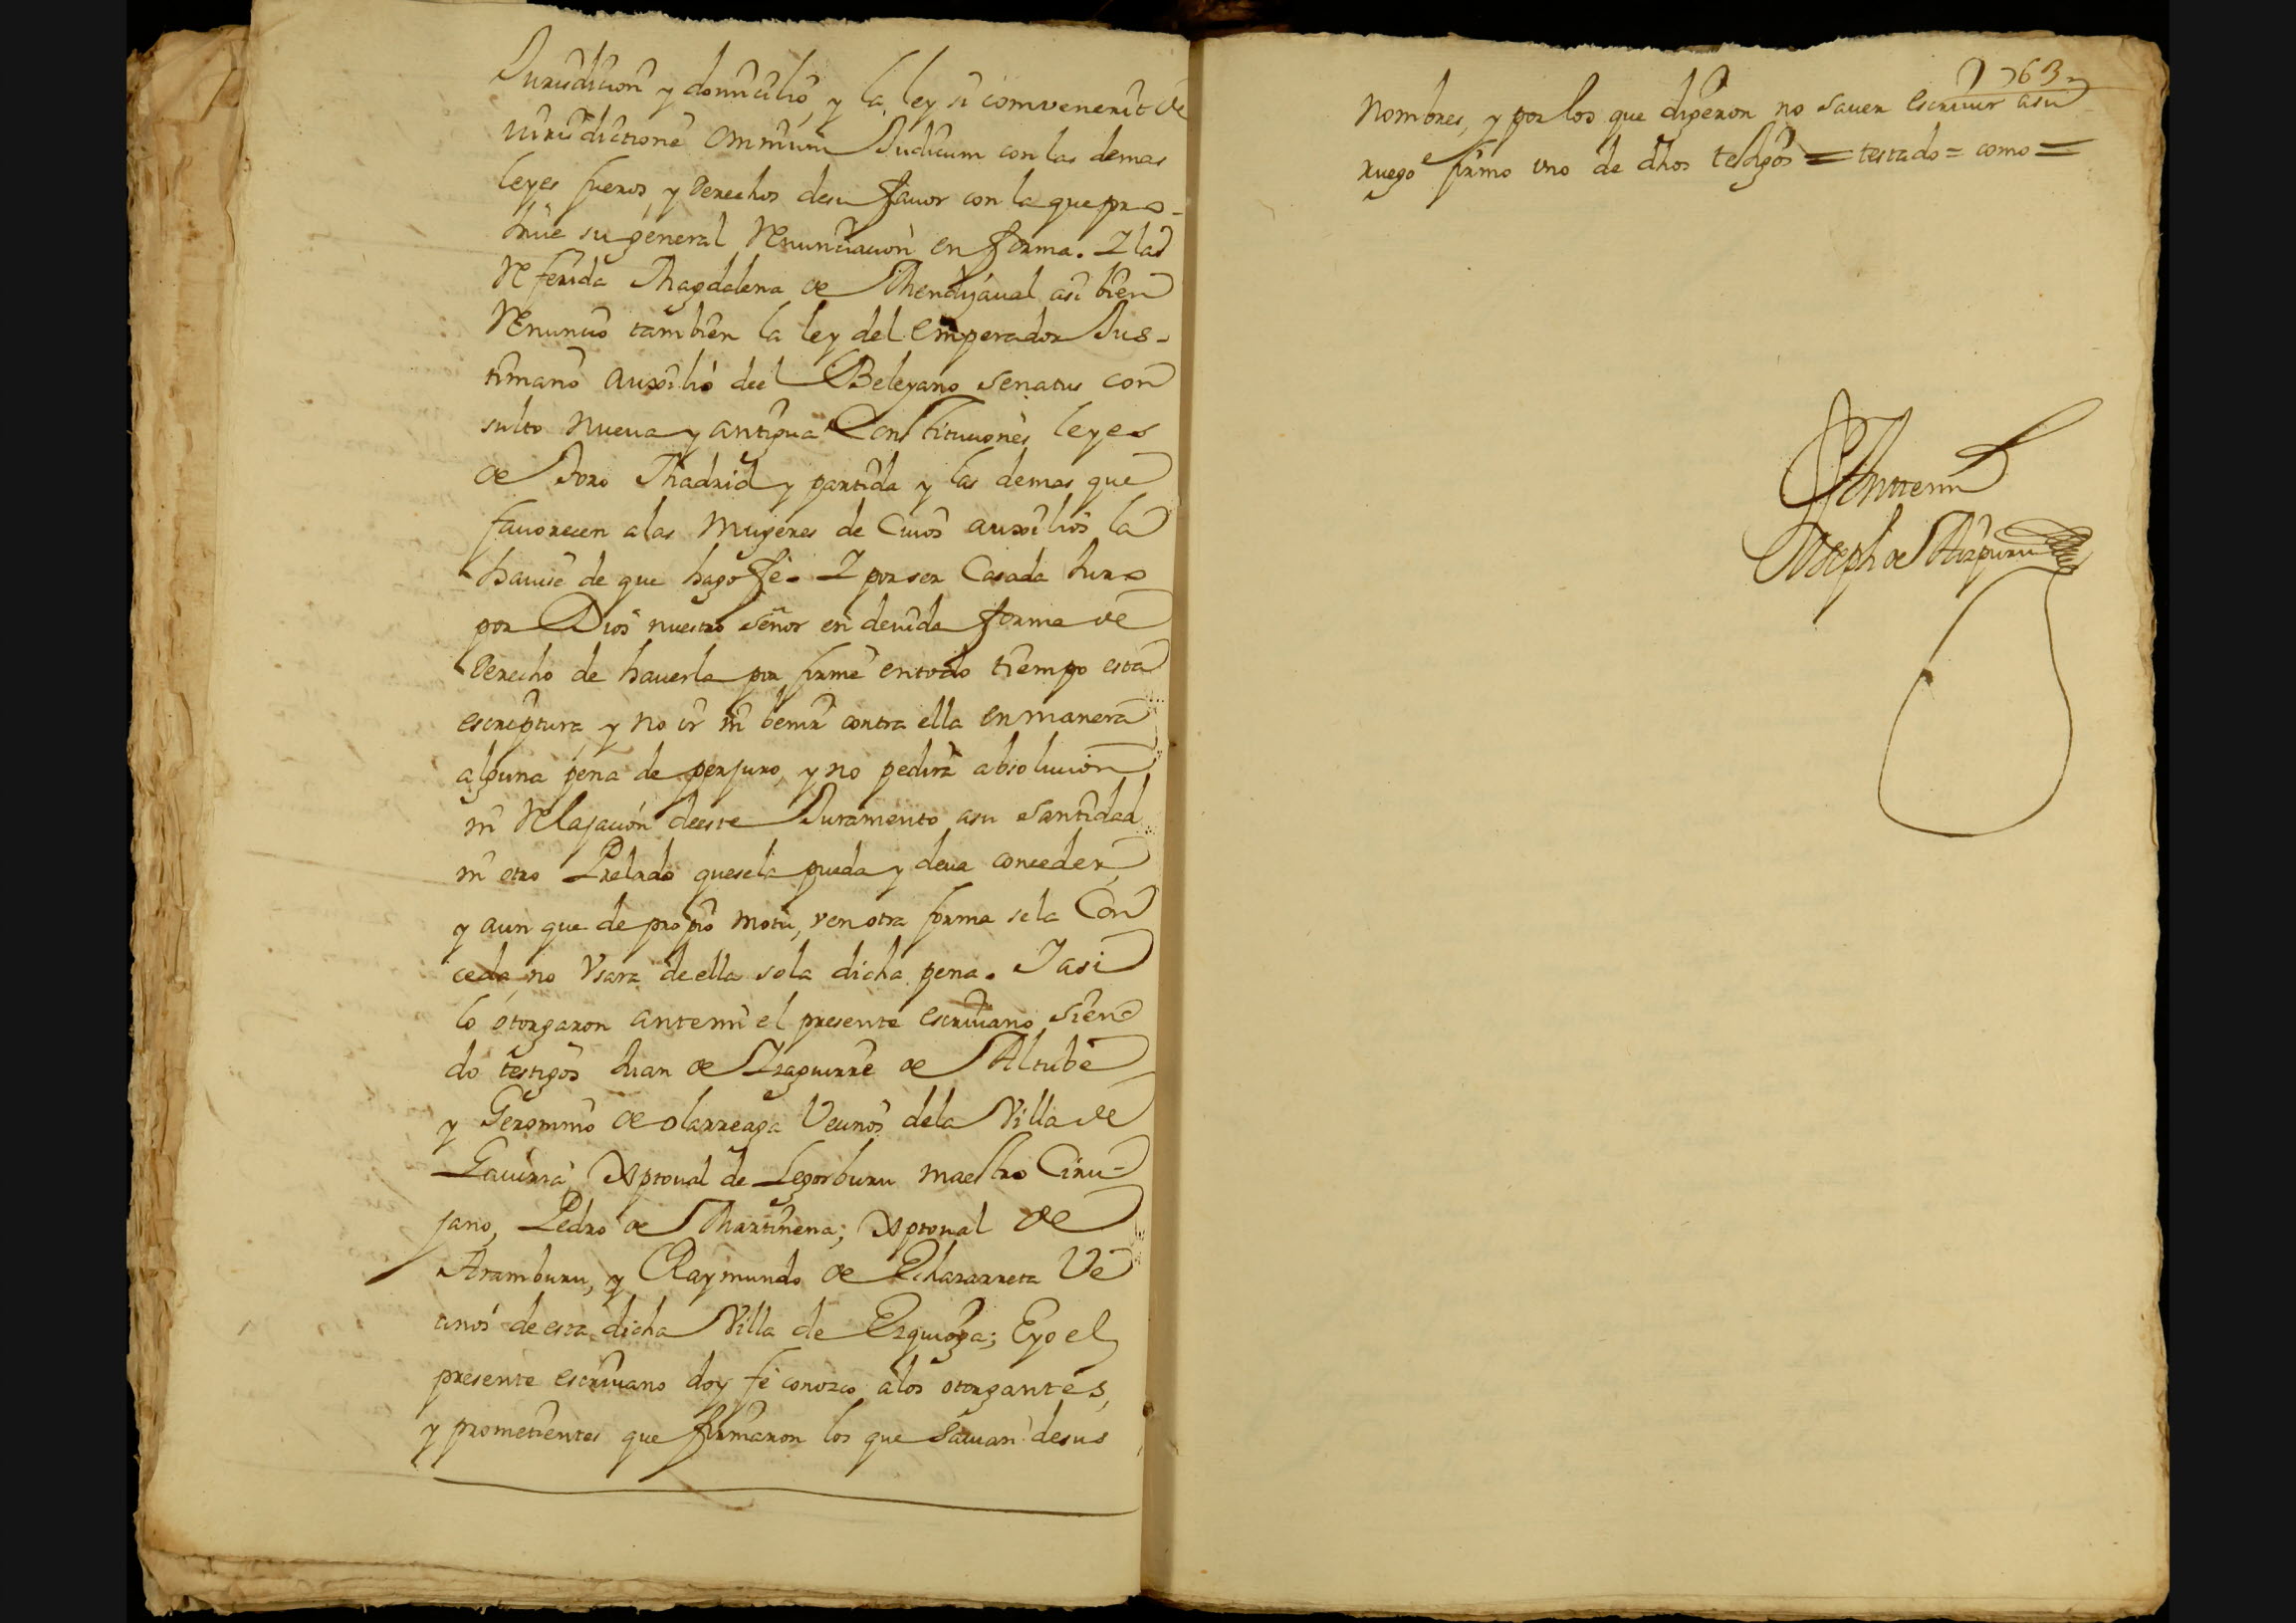 Jurisdicion y domicilio, y la ley si comvenerit de
iurisdictione omnium Judicum con las demas
leyes fueros, y derechos de su favor con la que pro-
hiue su general Renunciacion en forma. Y la
Referida Magdalena de Mendijaual asi bien
Renuncio tambien la ley del emperador Jus-
tiniano auxilio del Beleyano senatus con
sulto nueua y antigua Constituciones leyes
de Toro Madrid y partida y las demas que
fauorecen a las Mugeres de Cuios auxilios la
hauise de que hago fe. Y por ser Casada Juro
por Dios nuestro señor en deuida forma de
derecho de hauerla por firme en todo tiempo esta
escriptura y no ir ni benir contra ella en manera
alguna pena de perjuro, y no pedira absolucion
ni Relajacion de este Juramento a su Santidad
ni otro Prelado que se la pueda y deua conceder,
y aun que de propio motu, v en otra forma se la Con
ceda, no Vsara de ella so la dicha pena. Y asi
lo otorgaron ante mi el presente escriuano sien
do testigos Juan de Yzaguirre de Altube
y Geronimo de olarreaga Vecinos de la Villa de
Gauiria, Xptoual de Legorburu maestro Ciru-
jano, Pedro de Martinena; Xptoual de
Aramburu, y Raymundo de Echazarreta Ve
cinos de esta dicha Villa de Ezquioga; E yo el
presente escriuano doy fe conozco a los otorgantes,
y prometientes que firmaron los que Sauian de sus
763
Nombres, y por los que digeron no sauer escriuir a su
ruego firmo vno de dhos testigos = testado = como =
Ante mi
Joseph de Aizpuru